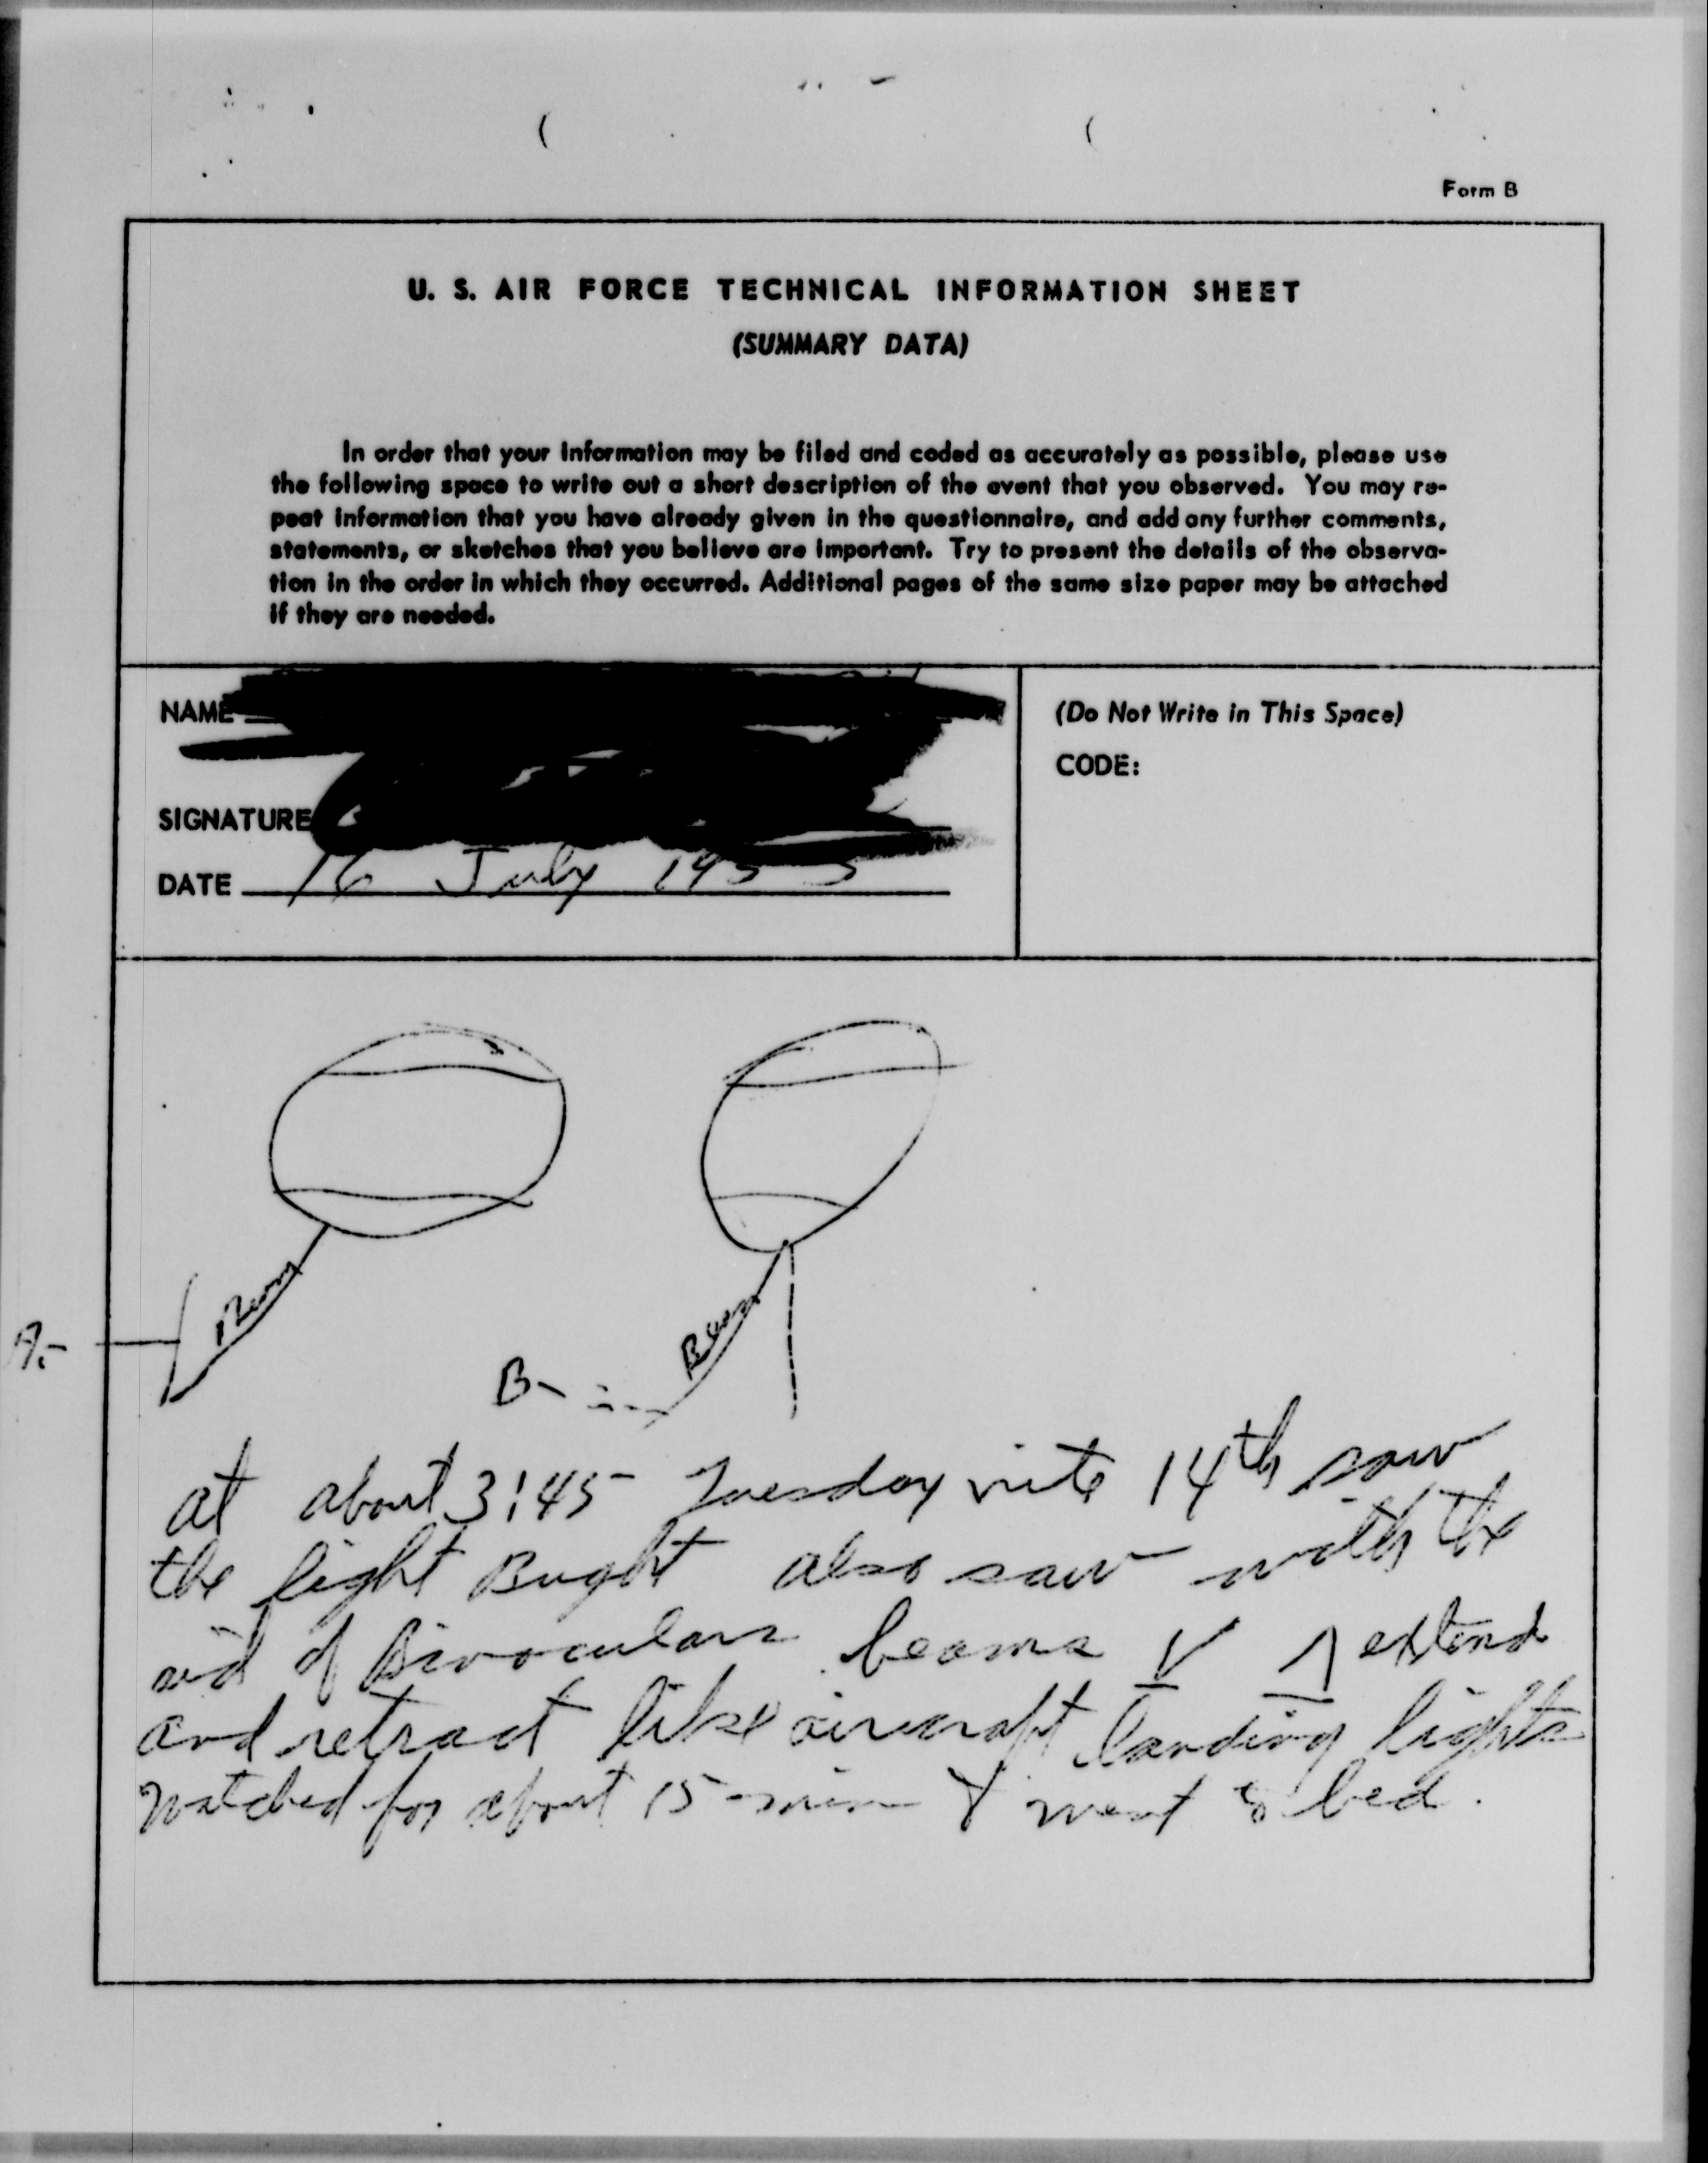 Form B
U. S. AIR FORCE TECHNICAL INFORMATION SHEET
(SUMMARY DATA)
In order that your information may be filed and coded as accurately as possible, please use
the following space to write out a short description of the event that you observed. You may re-
peat information that you have already given in the questionnaire, and add any further comments,
statements, or sketches that you believe are important. Try to present the details of the observa-
tion in the order in which they occurred. Additional pages of the same size paper may be attached
if they are needed.
NAME
(Do Not Write in This Space)
CODE:
SIGNATURE
DATE 16 July 1953
Beam
Beam
A-
B-
at about 3:45 Tuesday nite 14th saw
the light Bright also saw with the
aid of Binoculars beams V Λ extend
and retract like aircraft landing lights
Watched for about 15 min & went to bed.